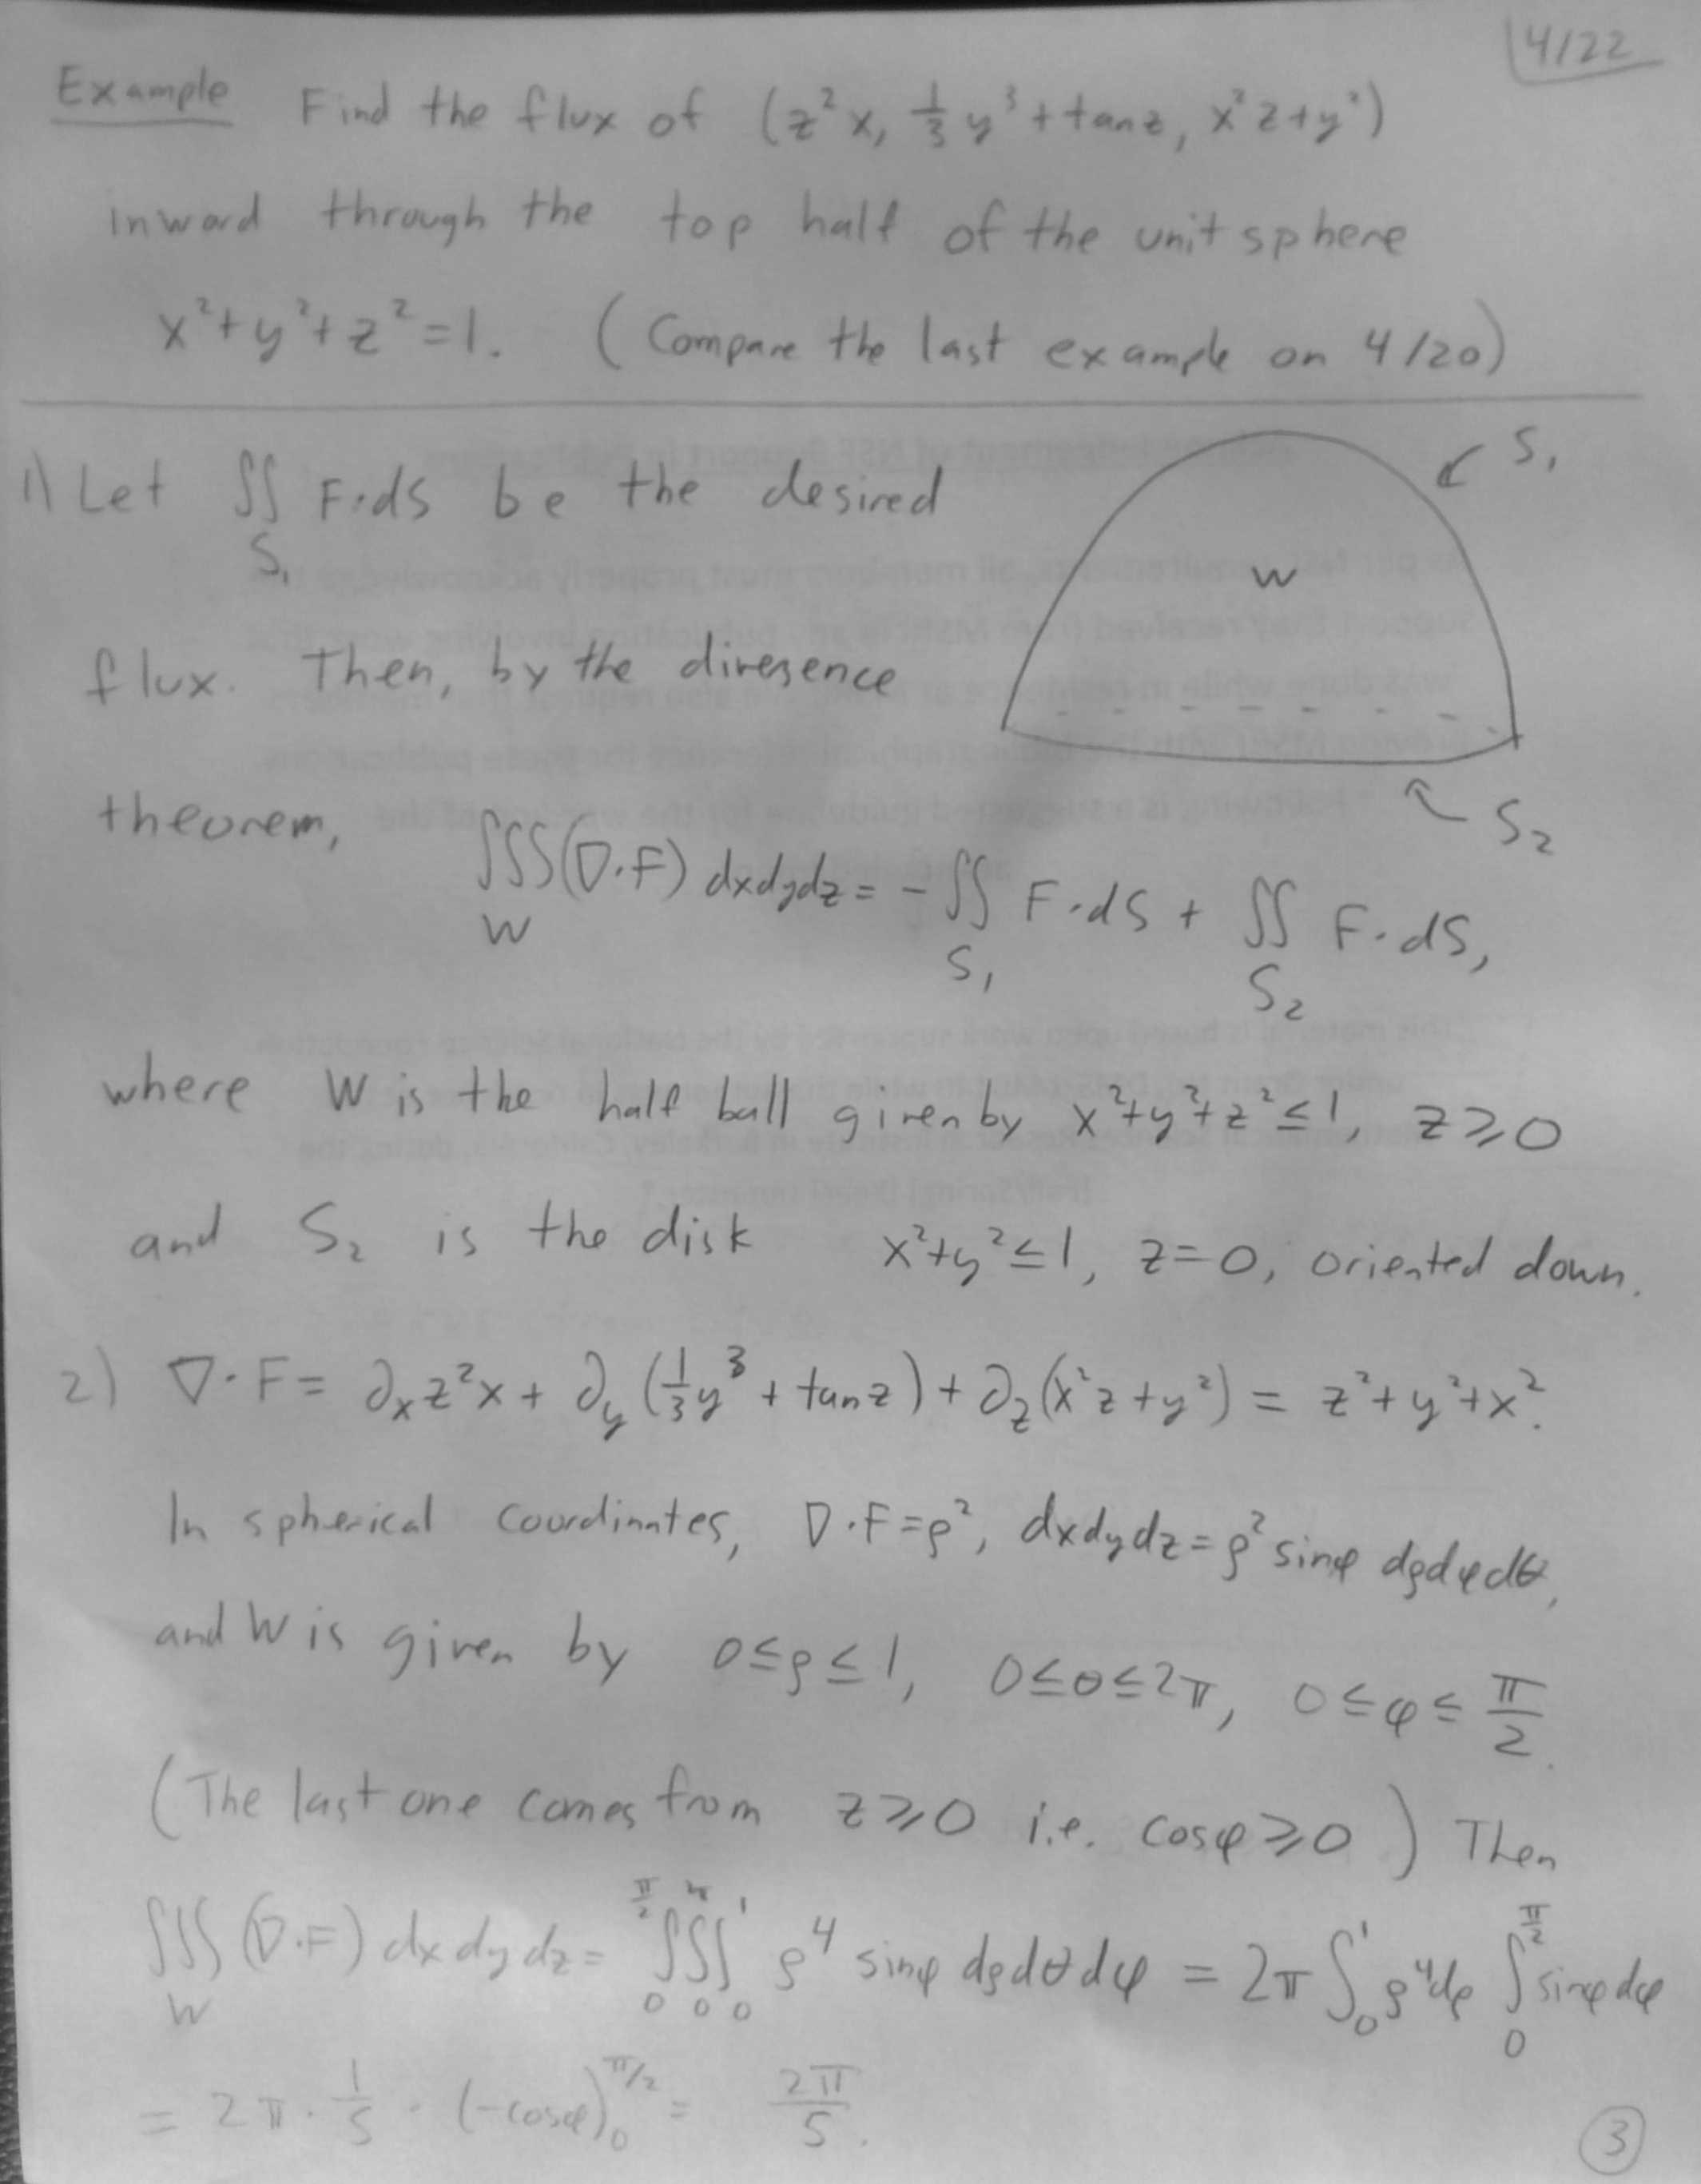 4/22
Example Find the flux of (z²x, ⅓y³+tanz, x²z+y²)
inward through the top half of the unit sphere
x²+y²+z²=1. (Compare the last example on 4/20)
1) Let ∬_{S₁} F·dS be the desired
S₁
W
flux. Then, by the divergence
S₂
theorem, ∭_W (∇·F) dxdydz = -∬_{S₁} F·dS + ∬_{S₂} F·dS,
where W is the half ball given by x²+y²+z²≤1, z≥0
and S₂ is the disk x²+y²≤1, z=0, oriented down.
2) ∇·F = ∂ₓz²x + ∂_y(⅓y³+tanz) + ∂_z(x²z+y²) = z²+y²+x².
In spherical coordinates, ∇·F=ρ², dxdydz=ρ² sinφ dρdφdθ,
and W is given by 0≤ρ≤1, 0≤θ≤2π, 0≤φ≤π/2.
(The last one comes from z≥0 i.e. cosφ≥0) Then
∭_W (∇·F) dxdydz = ∫₀^{π/2}∫₀^{2π}∫₀^1 ρ⁴ sinφ dρdθdφ = 2π ∫₀^1 ρ⁴dρ ∫₀^{π/2} sinφdφ
= 2π · 1/5 · (-cosφ)₀^{π/2} = 2π/5.
3